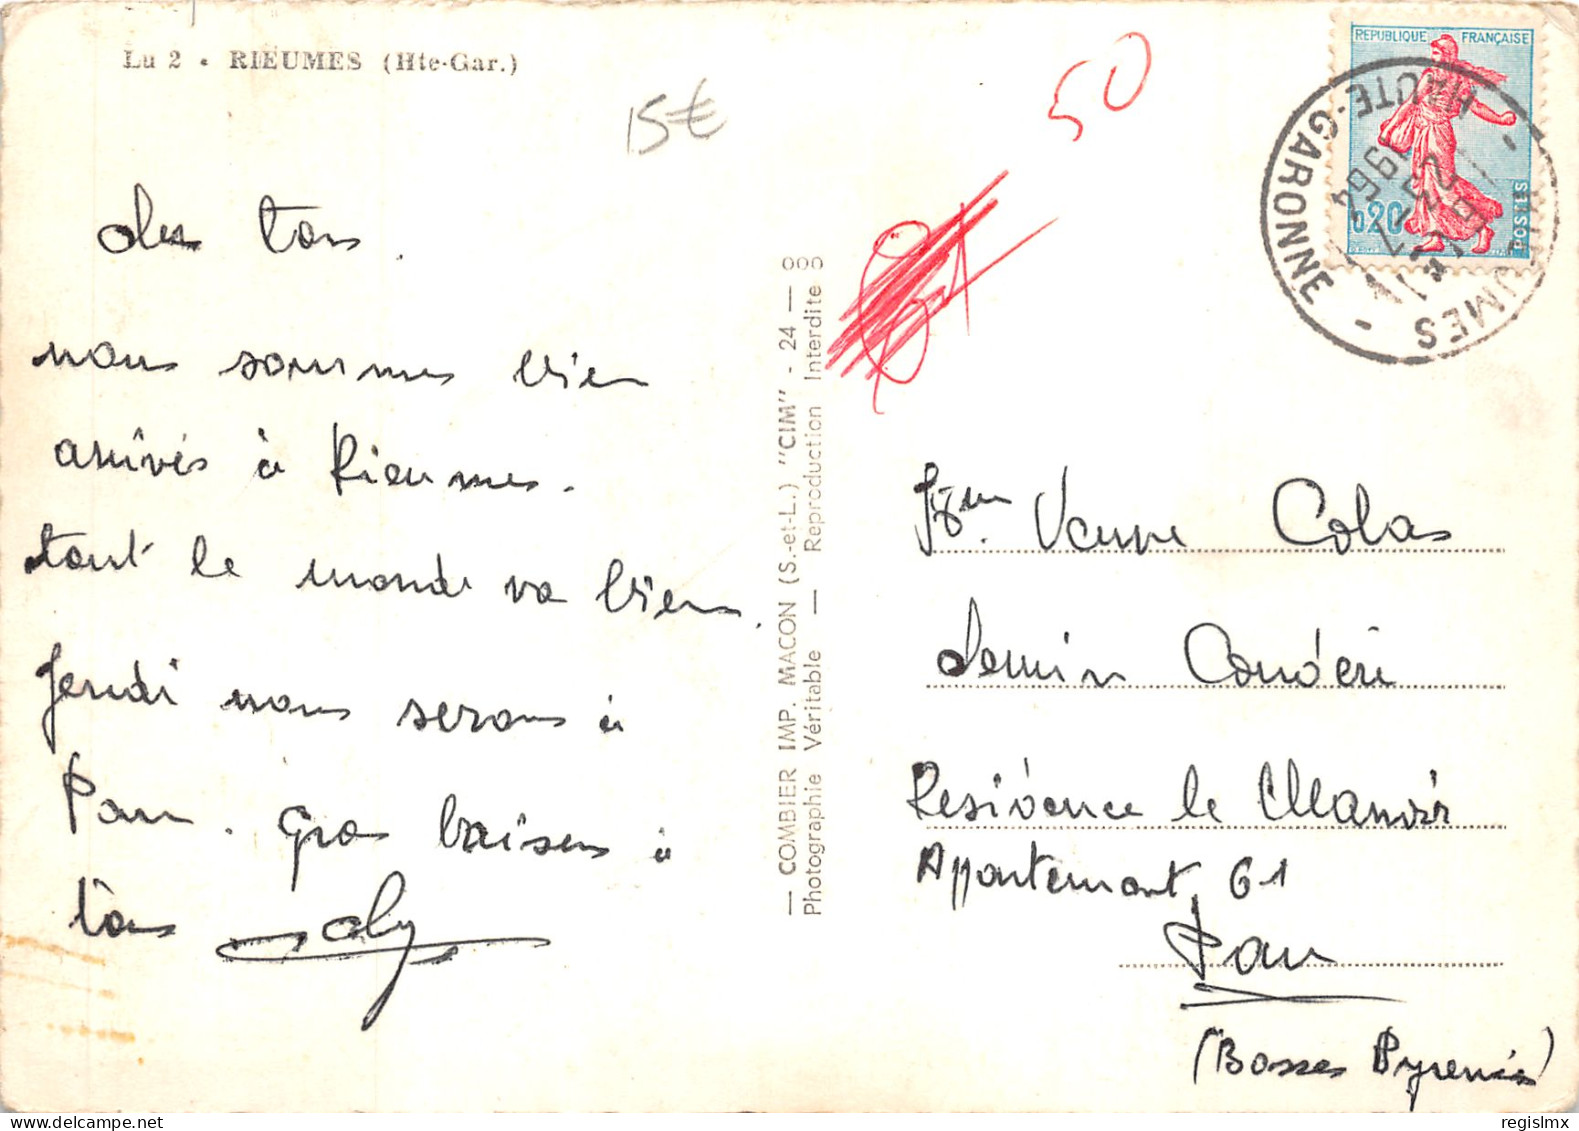 Lu 2 • RIEUMES (Hte-Gar.)
15€
50
des tous.
nous sommes bien
arrivés à Rieumes.
tout le monde va bien.
Jeudi nous serons à
Pau. Gros baisers à
tous
— COMBIER IMP. MACON (S.-et-L.) "CIM" - 24 —
Photographie Véritable — Reproduction Interdite
REPUBLIQUE FRANÇAISE
0,20
POSTES
RIEUMES
HAUTE-GARONNE
1964
Veuve Colas
Résidence le Manoir
Appartement 61
Pau
(Basses Pyrénées)
regislmx